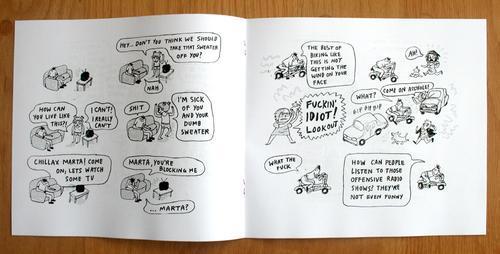 HEY... DON'T YOU THINK WE SHOULD
TAKE THAT SWEATER
OFF YOU?
NAH
HOW CAN
YOU LIVE LIKE
THIS?!
I CAN'T!
I REALLY
CAN'T
SHIT
I'M SICK OF
YOU AND YOUR
DUMB
SWEATER
CHILLAX MARTA! COME
ON, LETS WATCH
SOME TV
MARTA, YOU'RE
BLOCKING ME
... MARTA?
THE BEST OF
BIKING LIKE
THIS IS NOT
GETTING THE
WIND ON YOUR
FACE
AH!
FUCKIN'
IDIOT!
LOOKOUT
WHAT?
COME ON ASSHOLE!
WHAT THE
FUCK
HOW CAN PEOPLE
LISTEN TO THOSE
OFFENSIVE RADIO
SHOWS? THEY'RE
NOT EVEN FUNNY